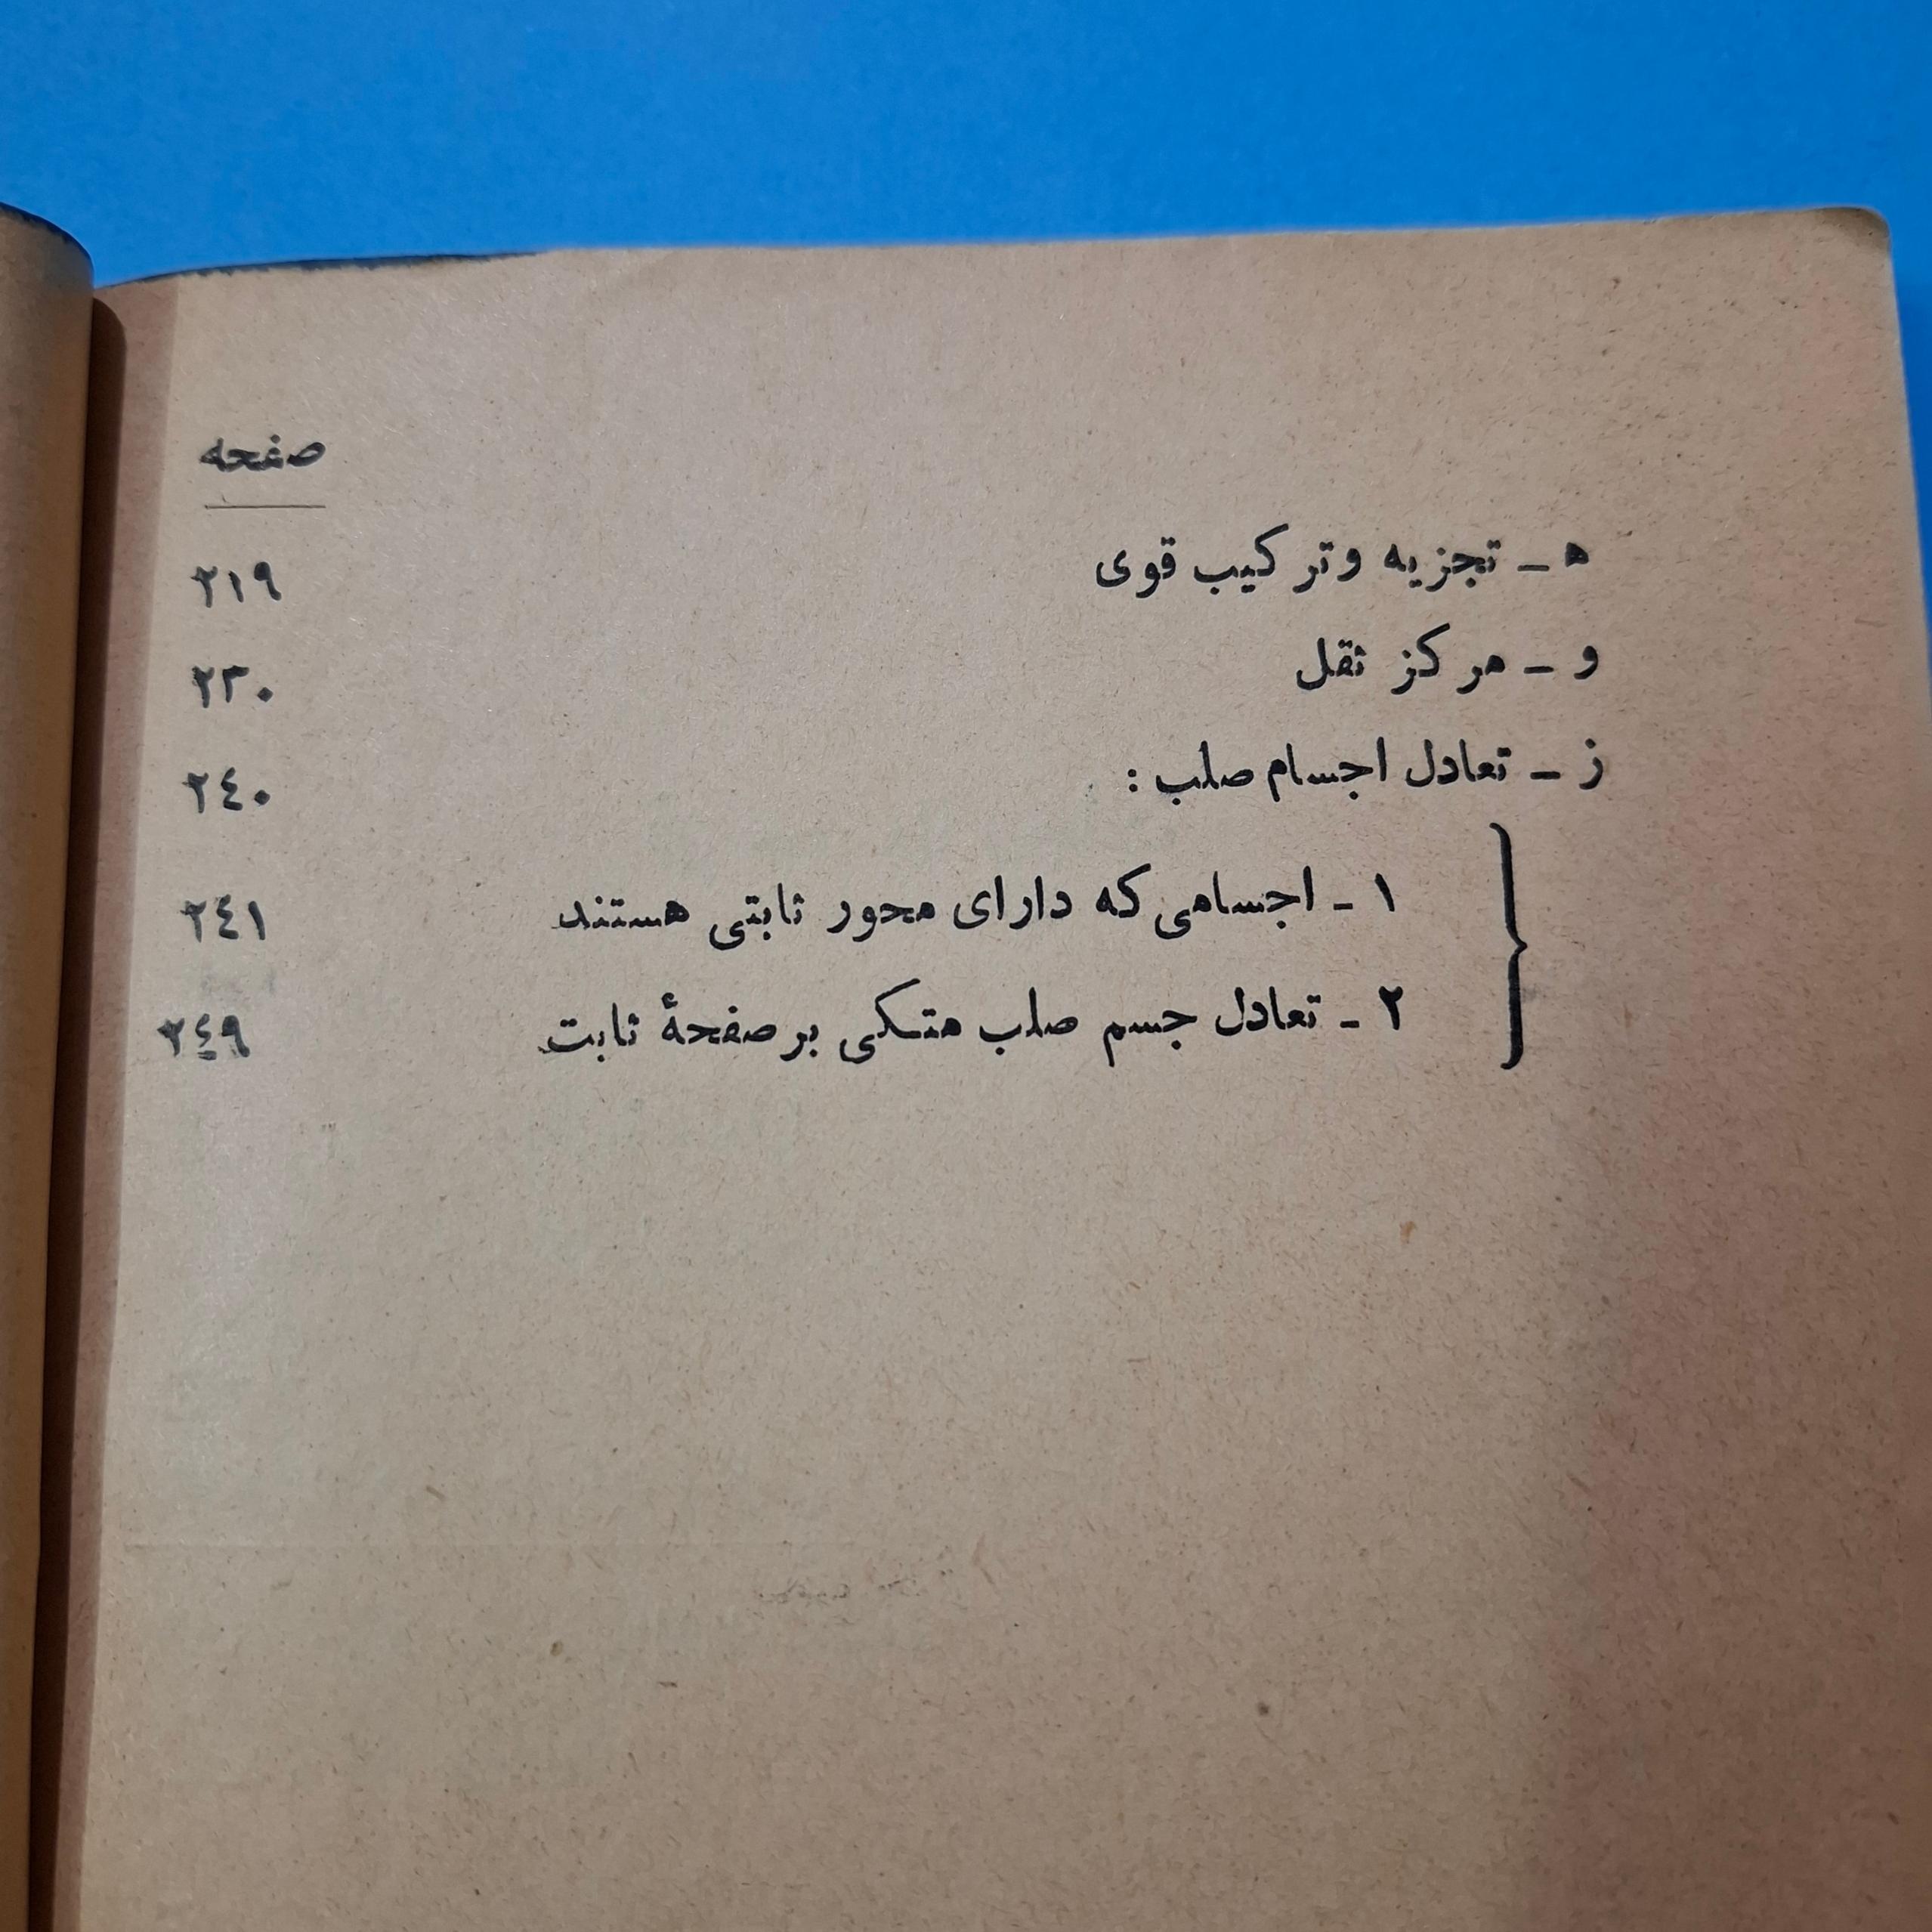 صفحه
ه ـ تجزیه وترکیب قوی ۲۱۹
و ـ مرکز ثقل ۲۳۰
ز ـ تعادل اجسام صلب : ۲٤۰
۱ ـ اجسامی که دارای محور ثابتی هستند ۲٤۱
۲ ـ تعادل جسم صلب متکی بر صفحهٔ ثابت ۲٤۹